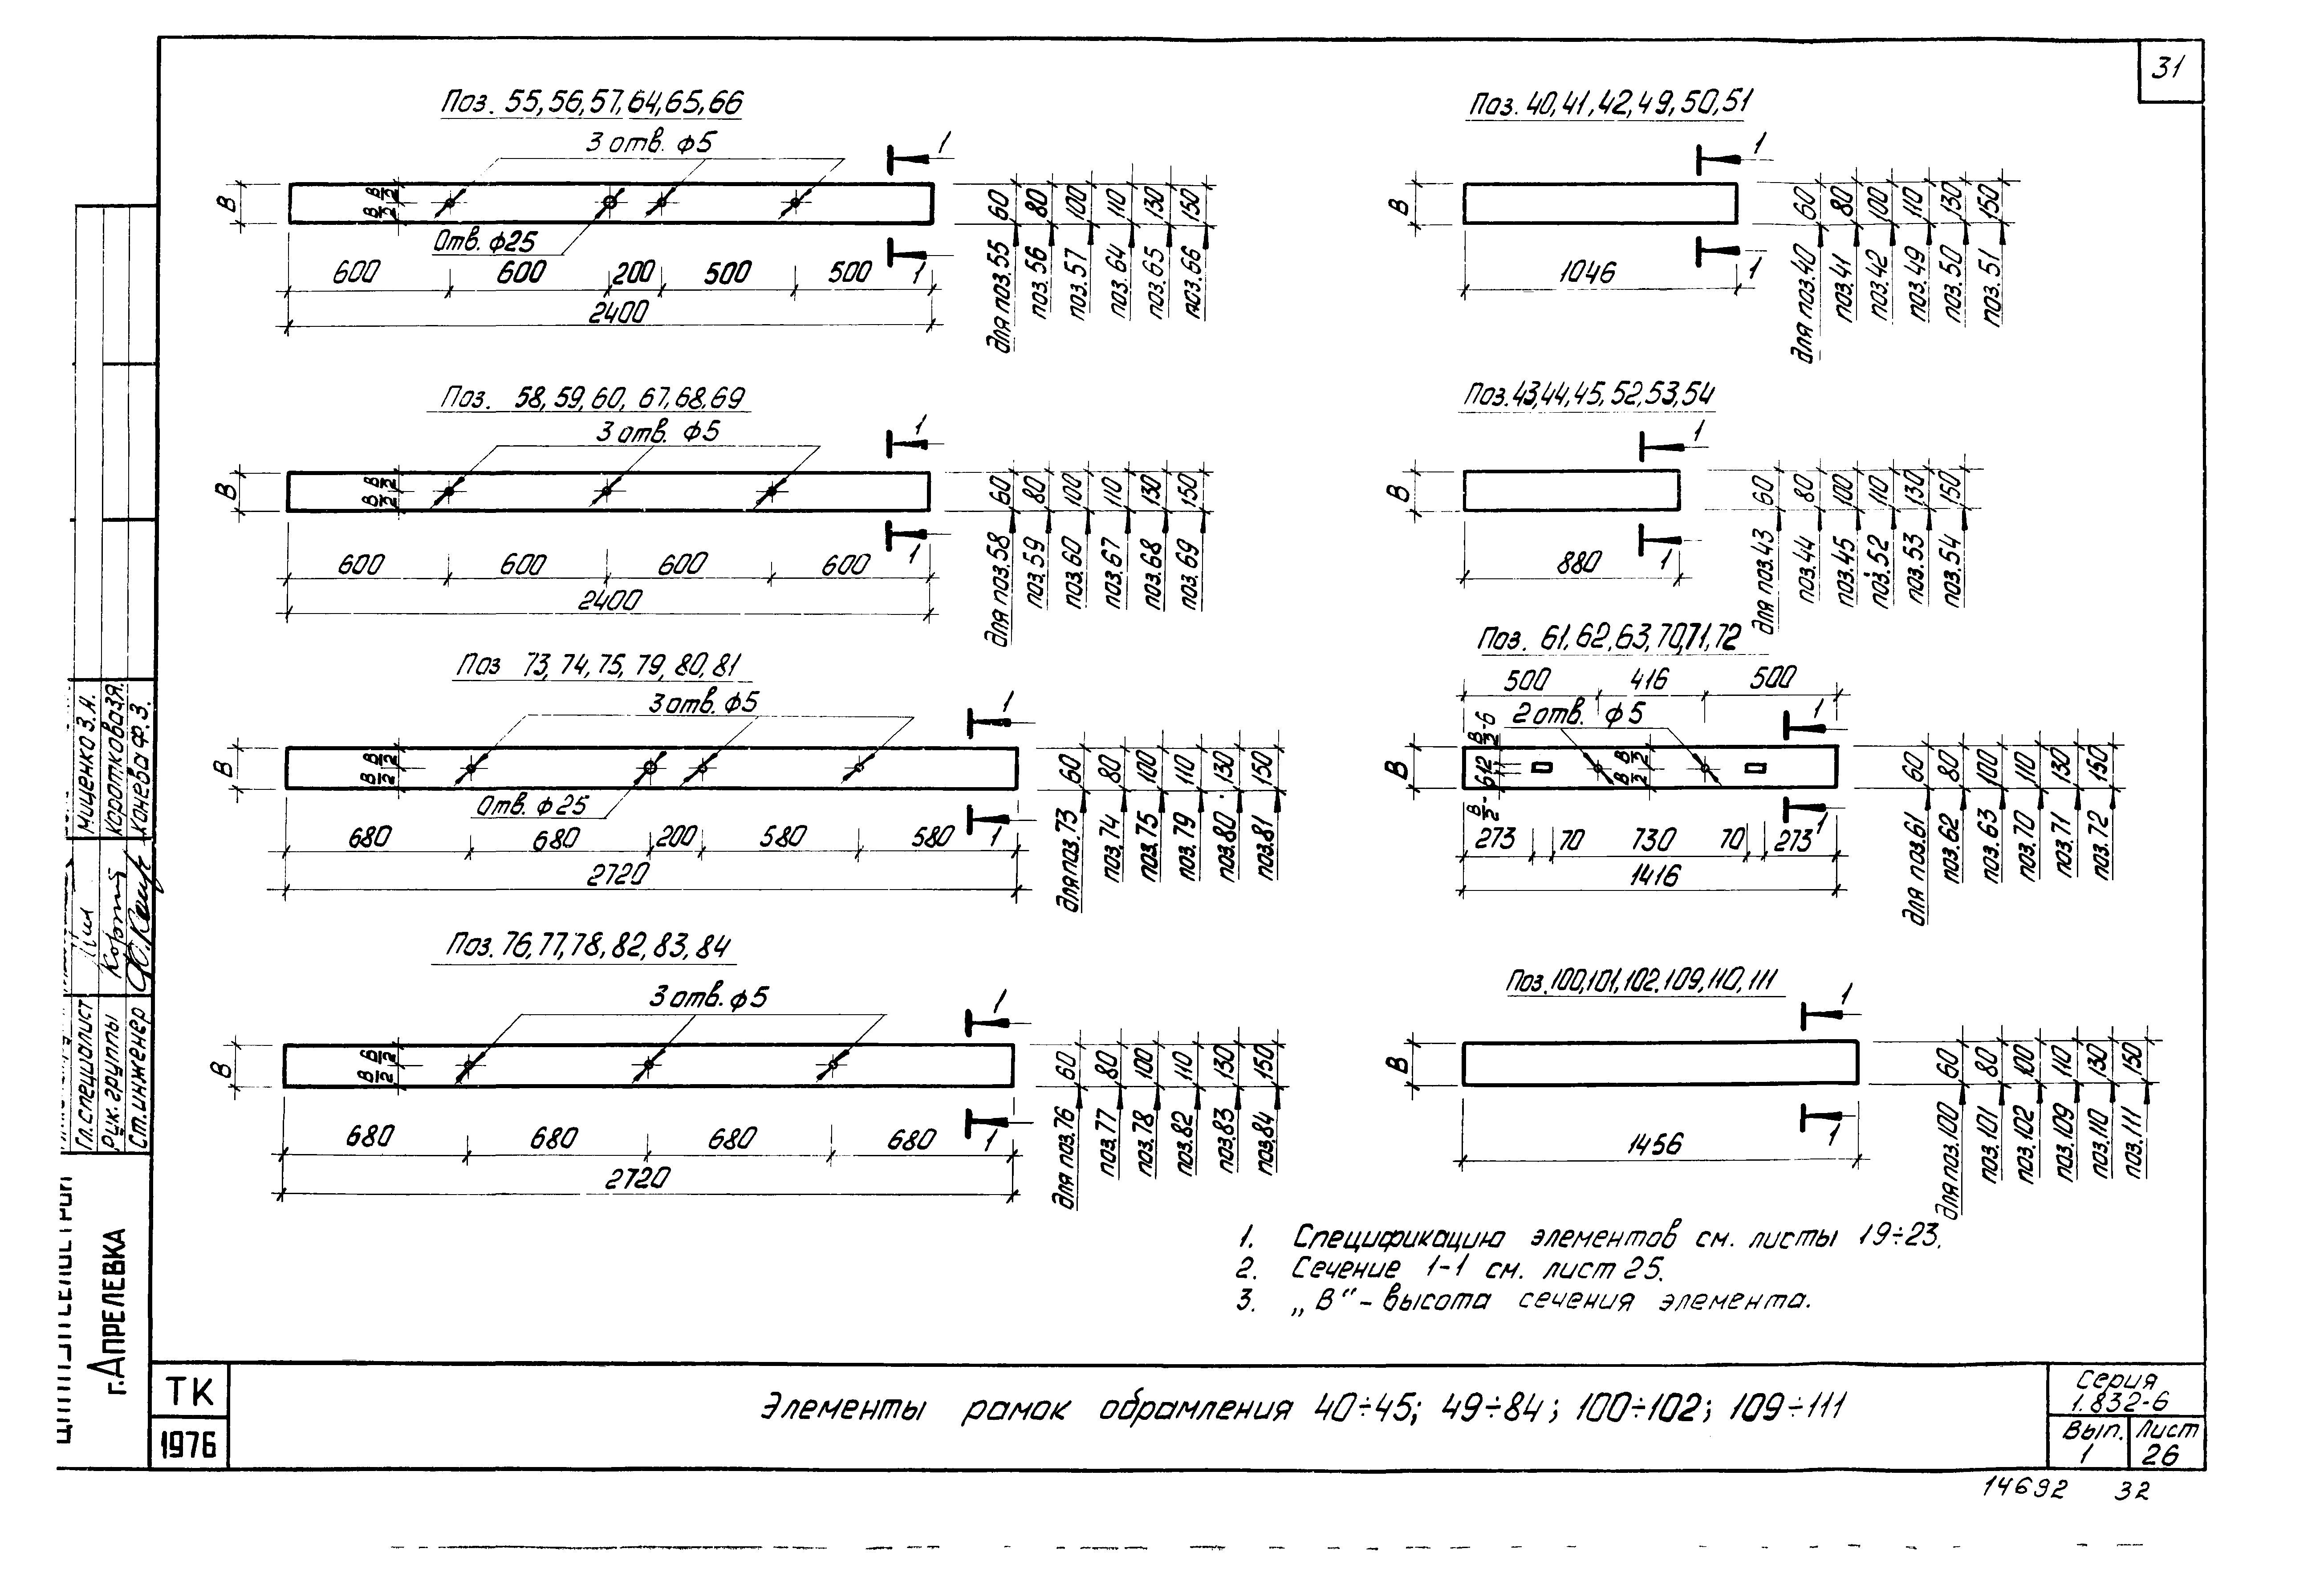 31
Поз. 55,56,57,64,65,66
3 отв. ф5
1
В
В/2
В/2
Отв. ф25
600 600 200 500 500 1
2400
60 80 100 110 130 150
для поз.55 поз.56 поз.57 поз.64 поз.65 поз.66
Поз. 40,41,42,49,50,51
1
В
1046
1
60 80 100 110 130 150
для поз.40 поз.41 поз.42 поз.49 поз.50 поз.51
Поз. 58,59,60, 67,68,69
3 отв. ф5
1
В
В/2
В/2
600 600 600 600 1
2400
60 80 100 110 130 150
для поз.58 поз.59 поз.60 поз.67 поз.68 поз.69
Поз.43,44,45,52,53,54
1
В
880
1
60 80 100 110 130 150
для поз.43 поз.44 поз.45 поз.52 поз.53 поз.54
Поз 73,74,75,79,80,81
3 отв. ф5
1
В
В/2
В/2
Отв. ф25
680 680 200 580 580 1
2720
60 80 100 110 130 150
для поз.73 поз.74 поз.75 поз.79 поз.80 поз.81
Поз. 61,62,63,70,71,72
500 416 500
2 отв. ф5
1
В
В/2-6
612
В/2-
В/2
В/2
273 70 730 70 273 1
1416
60 80 100 110 130 150
для поз.61 поз.62 поз.63 поз.70 поз.71 поз.72
Поз.76,77,78,82,83,84
3 отв. ф5
1
В
В/2
В/2
680 680 680 680 1
2720
60 80 100 110 130 150
для поз.76 поз.77 поз.78 поз.82 поз.83 поз.84
Поз.100,101,102.109,110,111
1
В
1456
1
60 80 100 110 130 150
для поз.100 поз.101 поз.102 поз.109 поз.110 поз.111
1. Спецификацию элементов см. листы 19÷23.
2. Сечение 1-1 см. лист 25.
3. „В“ - высота сечения элемента.
Гл.специалист Мищенко З.А.
Рук. группы Коротковая.
Ст.инженер Конева Ф.З.
г.АПРЕЛЕВКА
ТК
1976
Элементы рамок обрамления 40÷45; 49÷84; 100÷102; 109÷111
Серия
1.832-6
Вып. Лист
1 26
14692 32